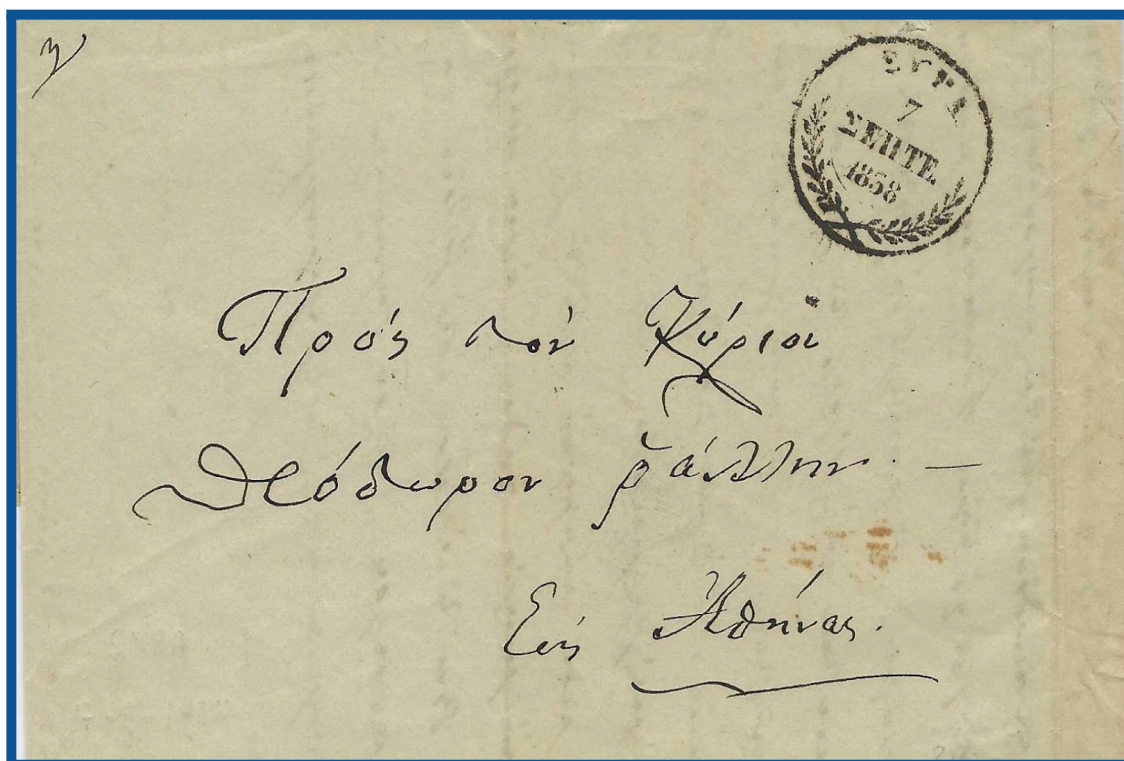 ΣΥΡΑ
7
ΣΕΠΤΕ.
1858
Πρός τόν Κύριον
Θεόδωρον Ῥάλλην. —
Εἰς Ἀθήνας.